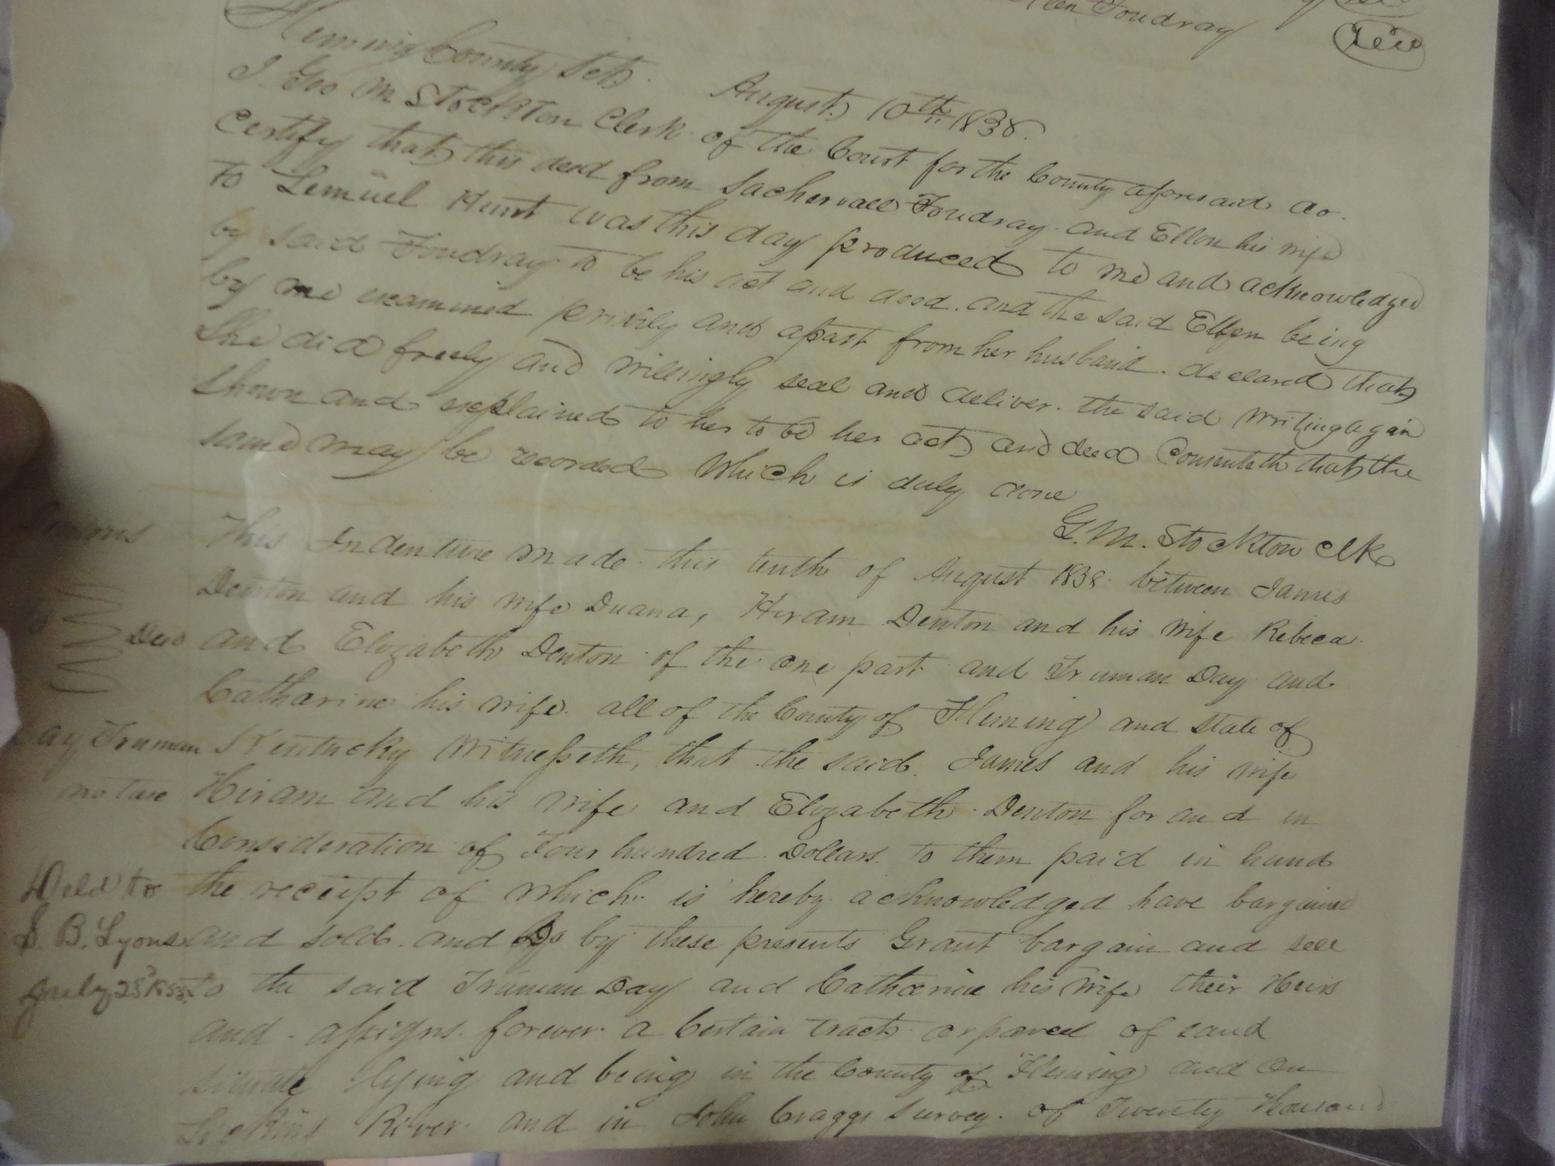 Ellen Foudray
Seal
Fleming County Sct. August 10th 1838.
I. Geo M Stockton Clerk of the Court for the County aforesaid do.
certify that this deed from Sachervall Foudray and Ellen his wife
to Lemuel Hunt was this day produced to me and acknowledged
by said Foudray to be his act and deed. and the said Ellen being
by me examined privily and apart from her husband. declared that
She did freely and willingly seal and deliver. the said writing again
shown and explained to her to be her act and deed Consenteth that the
same may be recorded Which is duly done
G. M. Stockton Clk
This Indenture made this tenth of August 1838 between James
Denton and his wife Duana, Hiram Denton and his wife Rebeca
Deed and Elizabeth Denton of the one part and Truman Day and
Catharine his wife. all of the County of Fleming and State of
Day Truman Kentucky Witnesseth, that the said. James and his wife
Hiram and his wife and Elizabeth Denton for and in
Consideration of Four hundred Dollars. to them paid in hand
Deld to the receipt of which is hereby acknowledged have bargained
S. B. Lyons and sold. and Do by these presents Grant bargain and sell
July 25 to the said Truman Day and Catharine his Wife their Heirs
and assigns forever a Certain tract or parcel of land
situate lying and being in the County of Fleming and on
Licking River and in John Craggs Survey. of Twenty thousand